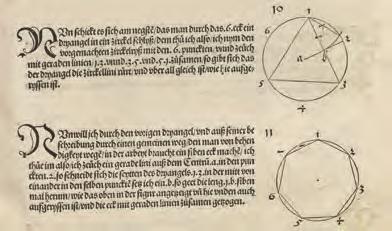 Nun schickt es sich am negsten/das man durch das .6.eck ein
dryangel in ein zirckel schließ/dem thů ich also/ich nym den
vorgemachten zirckelryß mit den .6. puncktten/vnnd zeüch
mit geraden linien .1.3.vnnd.3.5.vnd.5.1.zůsamen/so gibt sich das
der dryangel die zirckellini rürt/vnd vber all gleich ist/wie hie aufge-
ryssen ist.
10
1
2
3
4
5
6
a
Nun will ich durch den vorigen dryangel/vnd auß seiner be
schreibung durch einen gemeinen weg den man von behen
digkeyt wegẽ/in der arbeyt braucht ein siben eck machẽ/ich
thůe im also/ich zeüch ein gerade lini auß dem Centrũ .a. in den pun
ckten .2. so schneidt sich die seytten des dryangels .1.3. in der mit von
einander in den selben puncktẽ setz ich ein .b. so geet die leng .1.b. siben
mal herum/wie das oben in der figur angezeygt vñ hie vnden auch
aufgeryssen ist/vnd die eck mit geraden linien zůsamen gezogen.
11
1
2
3
4
5
6
7